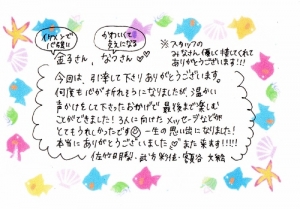 イケメンで
かわいくて
元気になる
金子さん、なつさん
※スタッフの
みなさん優しく接してくれて
ありがとうございます!!!
今回は、引率して下さりありがとうございます。
何度も心がおれそうになりましたが、温かい
声かけをして下さったおかげで最後まで楽しむ
ことができました! 3人に向けたメッセージなどが
とてもうれしかったです 一生の思い出になりました!
本当にありがとうございました また来ます!!!!
佐竹